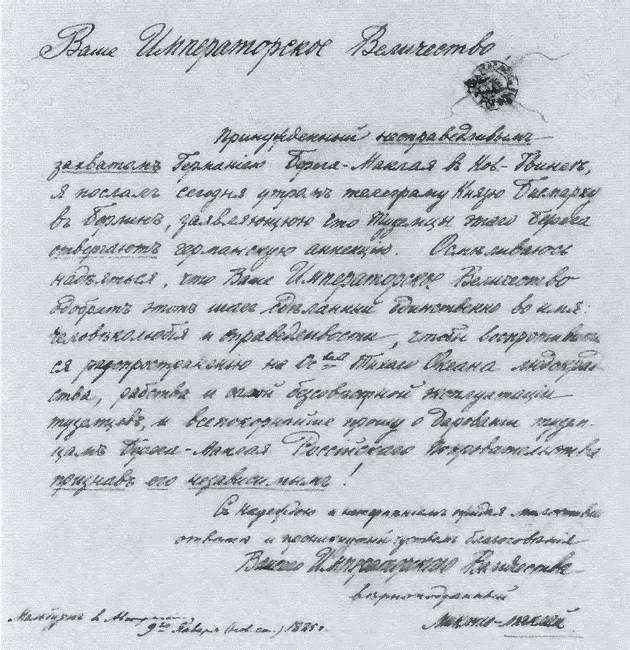 Ваше Императорское Величество,
Принужденный несправедливымъ
захватомъ Германіею Берега-Маклая въ Нов. Гвинеѣ,
я послалъ сегодня утромъ телеграму Князю Бисмарку
въ Берлинъ, заявляющую что туземцы этого Берега
отвергаютъ германскую аннексію. Осмѣливаюсь
надѣяться, что Ваше Императорское Величество
одобритъ этотъ шагъ сдѣланный единственно во имя
человѣколюбія и справедливости, чтобы воспротивить
ся распространенію на О-ва Тихаго Океана людокрад
ства, рабства и самой безсовѣстной эксплуатаціи
туземцевъ, и всепокорнѣйше прошу о дарованіи тузем-
цамъ Берега-Маклая Россійскаго покровительства
признавъ его независимымъ!
Съ надеждою и нетерпѣніемъ ожидая милостиваго
отвѣта и проникнутый чувствомъ благоговѣнія
Вашего Императорскаго Величества
вѣрноподданный
Миклухо-Маклай.
Мельбурнъ въ
9го Января (нов. ст.) 1885 г.